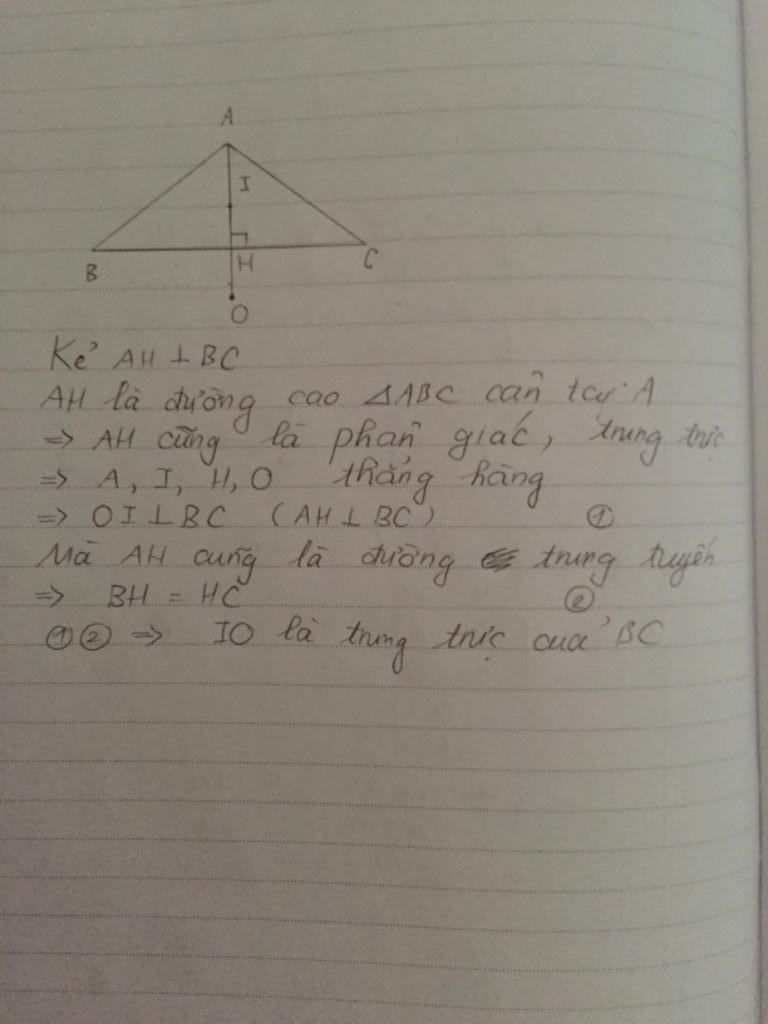 A
I
B
H
C
O
Kẻ AH ⊥ BC
AH là đường cao ΔABC cân tại A
=> AH cũng là phân giác, trung trực
=> A, I, H, O thẳng hàng
=> OI ⊥ BC (AH ⊥ BC) ①
Mà AH cũng là đường trung tuyến
=> BH = HC ②
① ② => IO là trung trực của BC